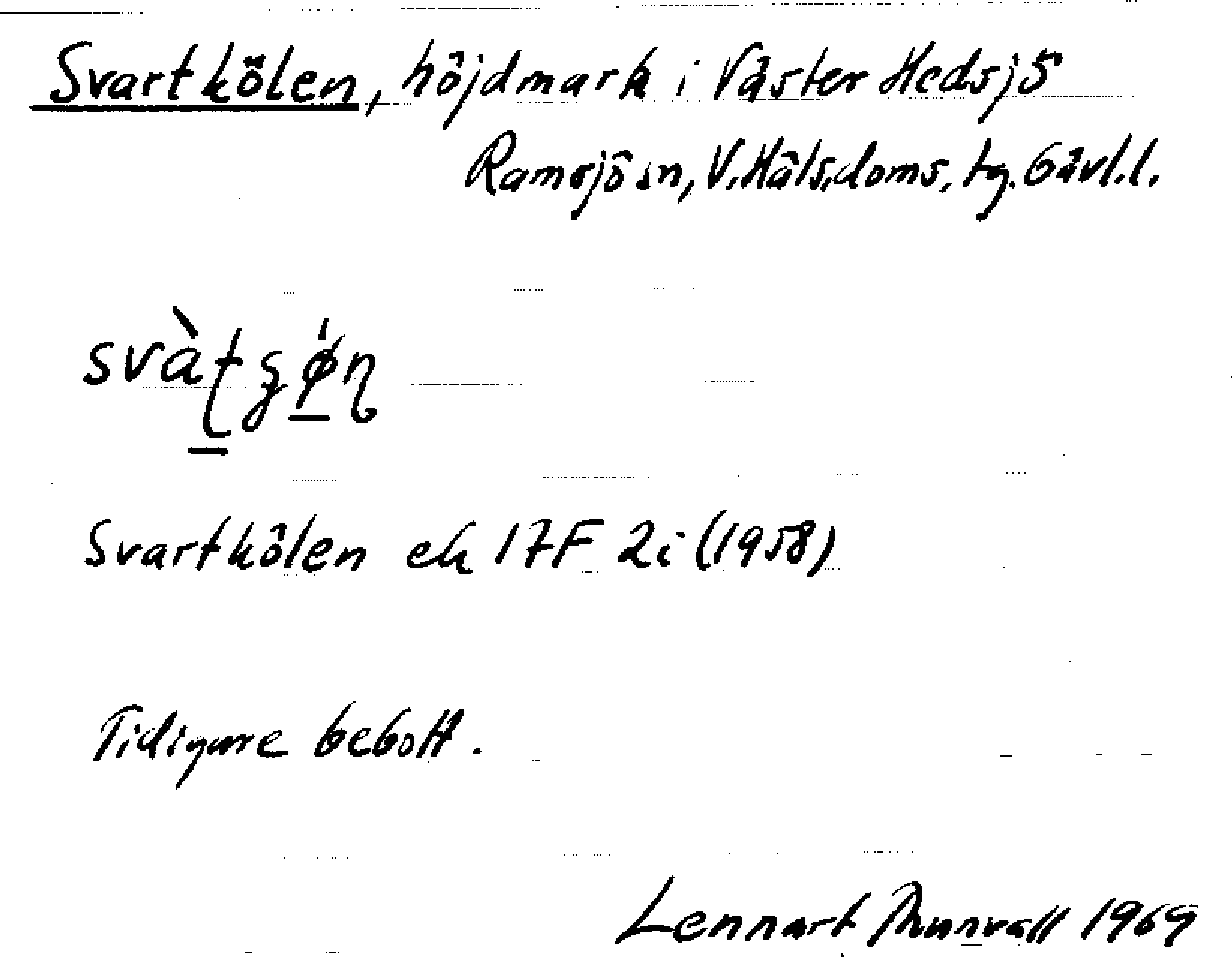 Svartkölen, höjdmark i Väster Hedsjö
Ramsjö sn, V. Häls. doms. tg. Gävl. l.
Svartkölen ek 17F 2i (1958)
Tidigare bebott.
Lennart Thunvall 1969